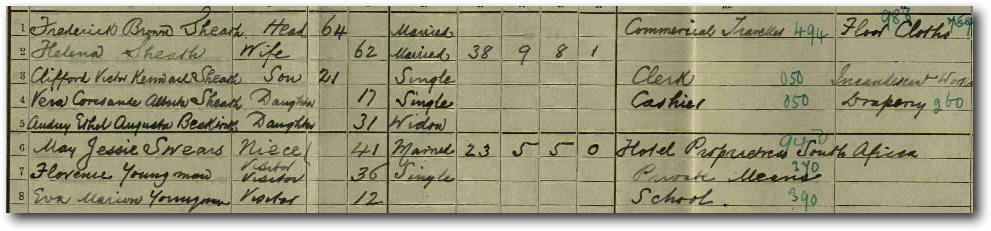 1 Frederick Brown Sheath Head 64 Married Commercial Traveller 494 Floor Cloths
2 Helena Sheath Wife 62 Married 38 9 8 1
3 Clifford Victor Kennard Sheath Son 21 Single Clerk 050 Incandescent
4 Vera Corisande Sheath Daughter 17 Single Cashier 050 Drapery 260
5 Audrey Ethel Augusta Daughter 31 Widow
6 May Jessie Swears Niece 41 Married 23 5 5 0 Hotel Proprietress South Africa
7 Florence Youngman Visitor 36 Single Private Means 390
8 Eva Marion Youngman Visitor 12 School 390